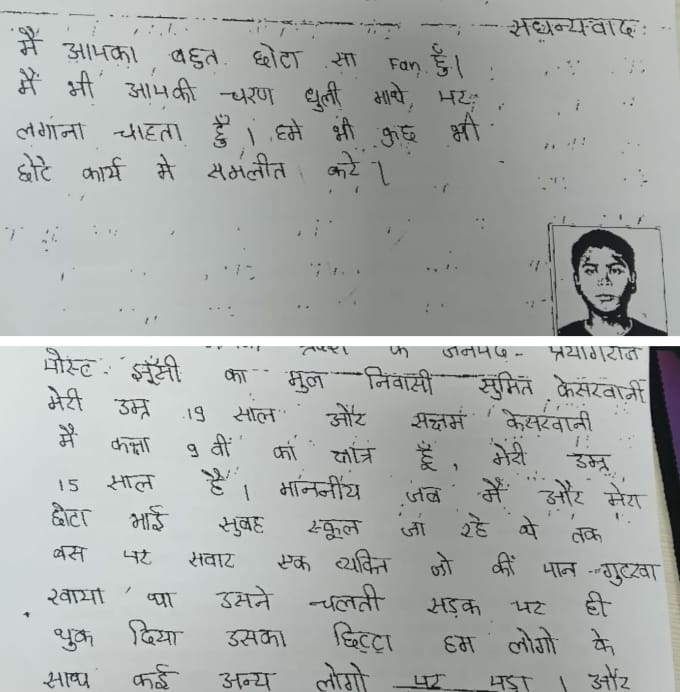 सधन्यवादः
मैं आपका बहुत छोटा सा Fan हूँ।
मैं भी आपकी चरण धुली माथे पर
लगाना चाहता हूँ। हमे भी कुछ भी
छोटे कार्य मे समलीत करे।
जनपद - प्रयागराज
पोस्ट झूँसी का मुल निवासी सुमित केसरवानी
मेरी उम्र 19 साल और सक्षम केसरवानी
मै कक्षा 9 वीं का छात्र हूँ, मेरी उम्र
15 साल है। माननीय जब मैं और मेरा
छोटा भाई सुबह स्कूल जा रहे थे तक
बस पर सवार एक व्यक्ति जो कीं पान-गुटखा
खाया था उसने चलती सड़क पर ही
थुक दिया उसका छिट्टा हम लोगो के
साथ कई अन्य लोगो पर पड़ा। और